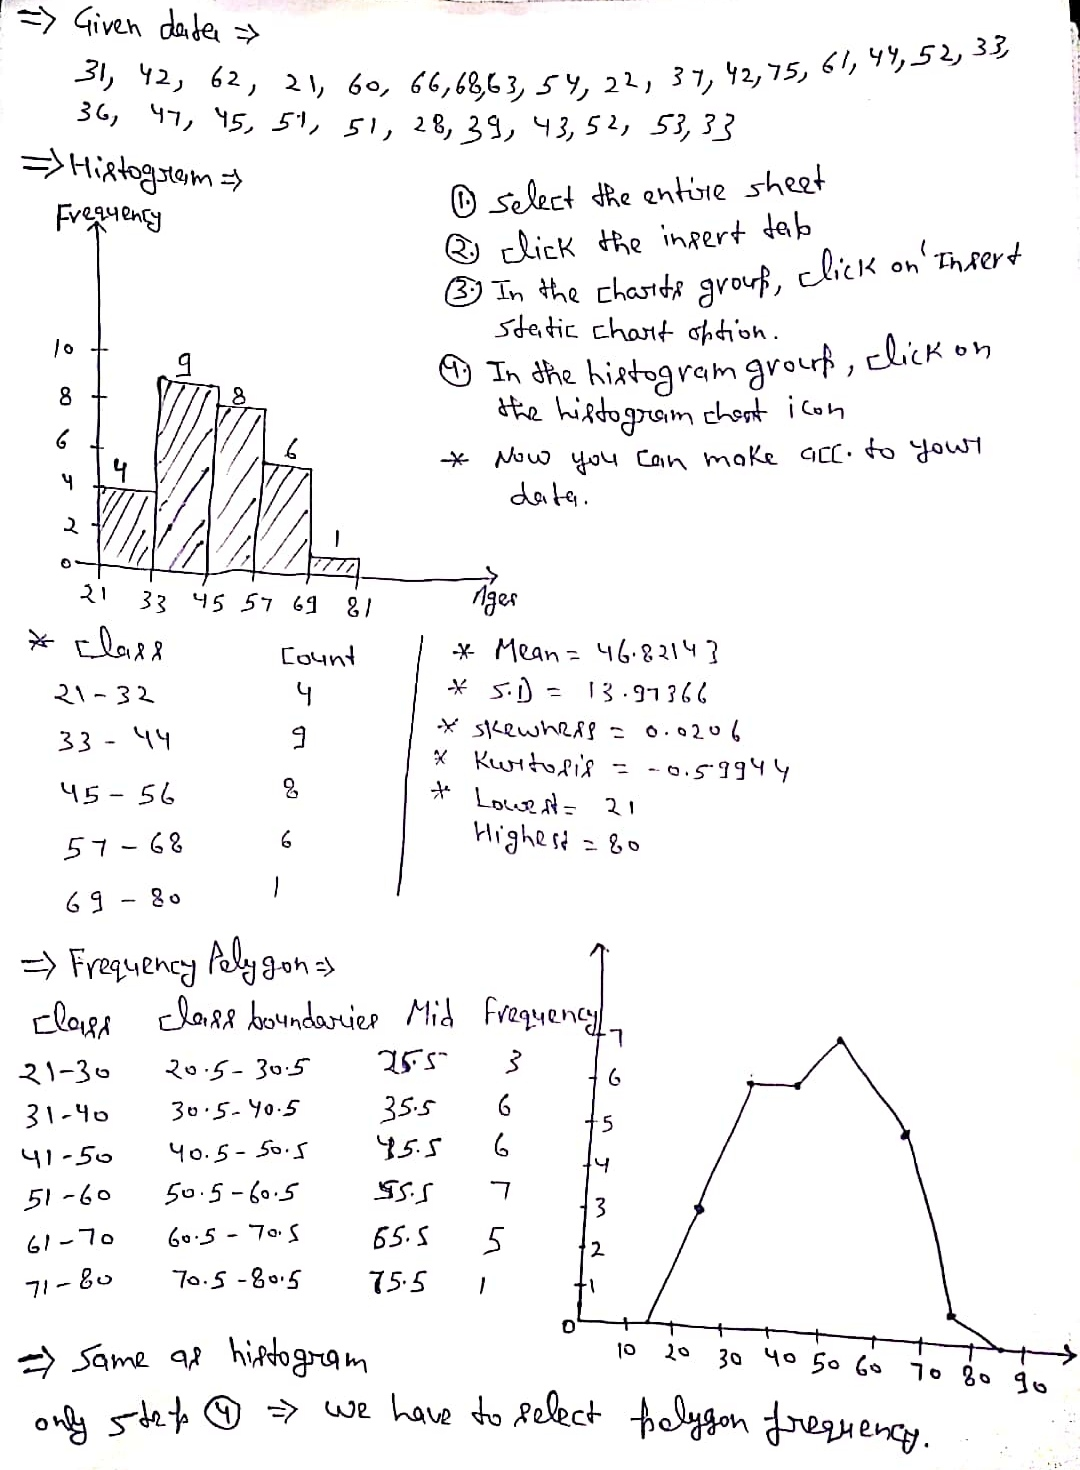 ⇒ Given data ⇒
31, 42, 62, 21, 60, 66, 68, 63, 54, 22, 37, 42, 75, 61, 44, 52, 33,
36, 47, 45, 51, 51, 28, 39, 43, 52, 53, 33
⇒ Histogram ⇒
Frequency
10
8
6
4
2
0
4
9
8
6
1
21 33 45 57 69 81
Ages
① Select the entire sheet
② click the insert tab
③ In the charts group, click on 'Insert
static chart option.
④ In the histogram group, click on
the histogram chart icon
* Now you can make acc. to your
data.
* Class Count
21-32 4
33-44 9
45-56 8
57-68 6
69-80 1
* Mean = 46.82143
* S.D = 13.97366
* Skewness = 0.0206
* Kurtosis = -0.59944
* Lowest = 21
Highest = 80
⇒ Frequency Polygon ⇒
Class Class boundaries Mid Frequency
21-30 20.5-30.5 25.5 3
31-40 30.5-40.5 35.5 6
41-50 40.5-50.5 45.5 6
51-60 50.5-60.5 55.5 7
61-70 60.5-70.5 65.5 5
71-80 70.5-80.5 75.5 1
7
6
5
4
3
2
1
0
10 20 30 40 50 60 70 80 90
⇒ Same as histogram
only step ④ ⇒ we have to select polygon frequency.